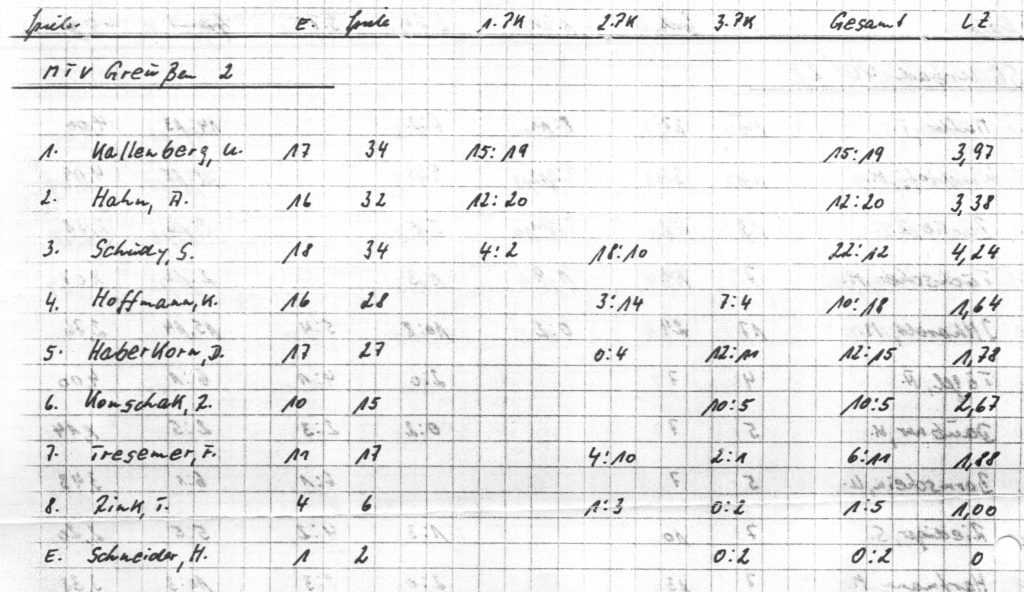 Spieler E. Spiele 1.PK 2.PK 3.PK Gesamt LZ
MTV Greußen 2
1. Kallenberg, U. 17 34 15:19 15:19 3,97
2. Hahn, A. 16 32 12:20 12:20 3,38
3. Schüdy, S. 18 34 4:2 18:10 22:12 4,24
4. Hoffmann, K. 16 28 3:14 7:4 10:18 1,64
5. Haberkorn, D. 17 27 0:4 12:11 12:15 1,78
6. Komschak, Z. 10 15 10:5 10:5 2,67
7. Tresemer, F. 11 17 4:10 2:1 6:11 1,88
8. Zink, T. 4 6 1:3 0:2 1:5 1,00
E. Schneider, H. 1 2 0:2 0:2 0